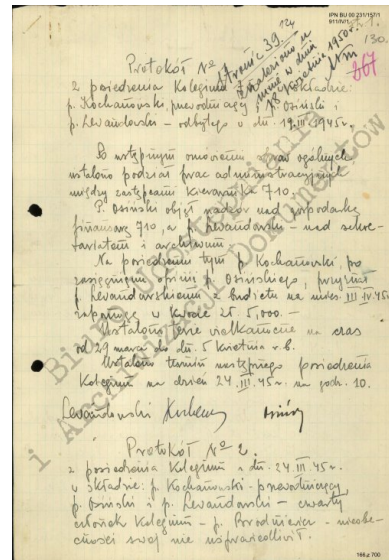 IPN BU 00 231/157/1
124
130.
Protokół Nº
Stronic 39.
z posiedzenia Kolegium w składzie:
p. Kochanowski, przewodniczący, Osiński i
18 września 1950r.
267
p. Lewandowski – odbytego w dn. 19.III.1945r.
W wstępnym omówieniu spraw ogólnych
ustalono podział prac administracyjnych
między zastępcami Kierownika 710.
P. Osiński objął nadzór nad gospodarką
finansową 710, a p. Lewandowski – nad sekre-
tariatem i archiwum.
Na posiedzeniu tym p. Kochanowski, po
zasięgnięciu opinii p. Osińskiego, przyznał
p. Lewandowskiemu z budżetu na mies. III-IV.45r
zapomogę w kwocie zł. 5,000.–
Ustalono ferie wielkanocne na czas
od 29 marca do dn. 5 kwietnia r.b.
Ustalono termin następnego posiedzenia
Kolegium na dzień 24.III.45r. na godz. 10.
Lewandowski
Protokół Nº 2.
z posiedzenia Kolegium w dn. 24.III.45r.
w składzie: p. Kochanowski – przewodniczący
p. Osiński i p. Lewandowski – czwarty
członek Kolegium – p. – nieobe-
cności swej nie usprawiedliwił.
Biuro Udostępniania
i Archiwizacji Dokumentów